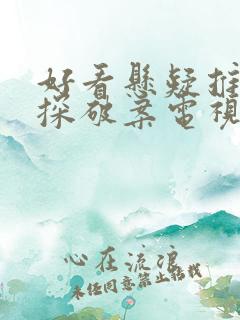 好看懸疑推
探破案電視
心在流浪
未经同意禁止搭载